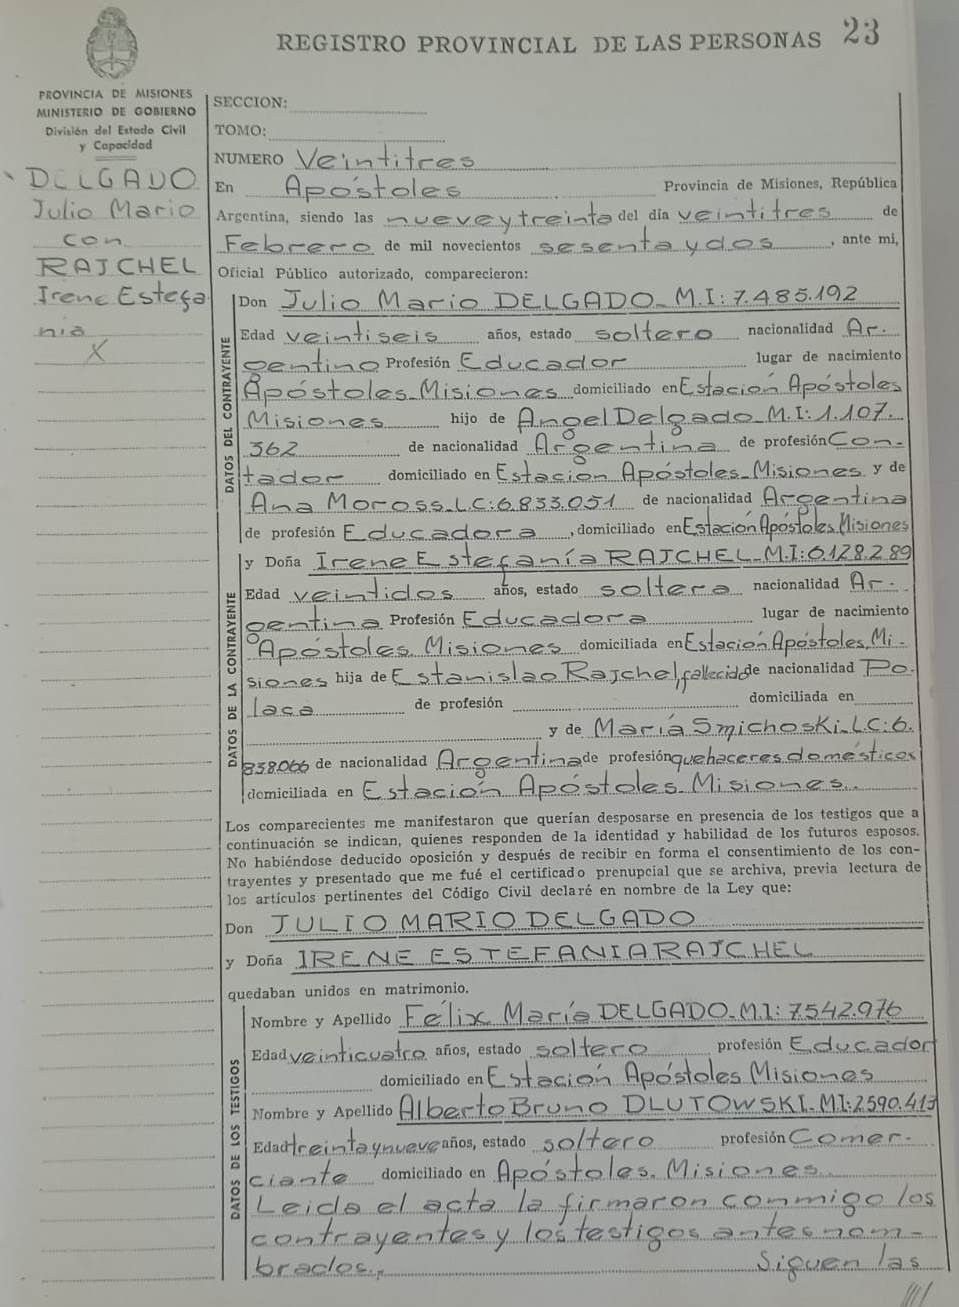 REGISTRO PROVINCIAL DE LAS PERSONAS 23
PROVINCIA DE MISIONES
MINISTERIO DE GOBIERNO
División del Estado Civil
y Capacidad
DELGADO
Julio Mario
con
RAJCHEL
Irene Estefa
nia
X
SECCION:
TOMO:
NUMERO Veintitres
En Apóstoles Provincia de Misiones, República
Argentina, siendo las nueve y treinta del día veintitres de
Febrero de mil novecientos sesenta y dos, ante mi,
Oficial Público autorizado, comparecieron:
DATOS DEL CONTRAYENTE
Don Julio Mario DELGADO_ M.I: 7.485.192
Edad veintiseis años, estado soltero nacionalidad Ar-
gentino Profesión Educador lugar de nacimiento
Apóstoles_Misiones domiciliado en Estación Apóstoles
Misiones hijo de Angel Delgado_M.I: 1.107.
362 de nacionalidad Argentina de profesión Con-
tador domiciliado en Estación Apóstoles_Misiones y de
Ana Moross_L.C:6.833.051 de nacionalidad Argentina
de profesión Educadora, domiciliado en Estación Apóstoles Misiones
y Doña Irene Estefanía RAJCHEL_M.I:6.128.289
DATOS DE LA CONTRAYENTE
Edad veintidos años, estado soltera nacionalidad Ar-
gentina Profesión Educadora lugar de nacimiento
Apóstoles. Misiones domiciliada en Estación Apóstoles, Mi-
siones hija de Estanislao Rajchel, fallecido de nacionalidad Po-
laca de profesión domiciliada en
y de María Smichoski_L.C:6.
838.066 de nacionalidad Argentina de profesión quehaceres domésticos
domiciliada en Estación Apóstoles_Misiones_.
Los comparecientes me manifestaron que querían desposarse en presencia de los testigos que a
continuación se indican, quienes responden de la identidad y habilidad de los futuros esposos.
No habiéndose deducido oposición y después de recibir en forma el consentimiento de los con-
trayentes y presentado que me fué el certificado prenupcial que se archiva, previa lectura de
los artículos pertinentes del Código Civil declaré en nombre de la Ley que:
Don JULIO MARIO DELGADO
y Doña IRENE ESTEFANIA RAJCHEL
quedaban unidos en matrimonio.
DATOS DE LOS TESTIGOS
Nombre y Apellido Félix María DELGADO_M.I: 7.542.976
Edad veinticuatro años, estado soltero profesión Educador
domiciliado en Estación Apóstoles Misiones
Nombre y Apellido Alberto Bruno DLUTOWSKI_MI:2590.413
Edad treinta y nueve años, estado soltero profesión Comer-
ciante domiciliado en Apóstoles. Misiones
Leida el acta la firmaron conmigo los
contrayentes y los testigos antes nom-
brados._ Siguen las